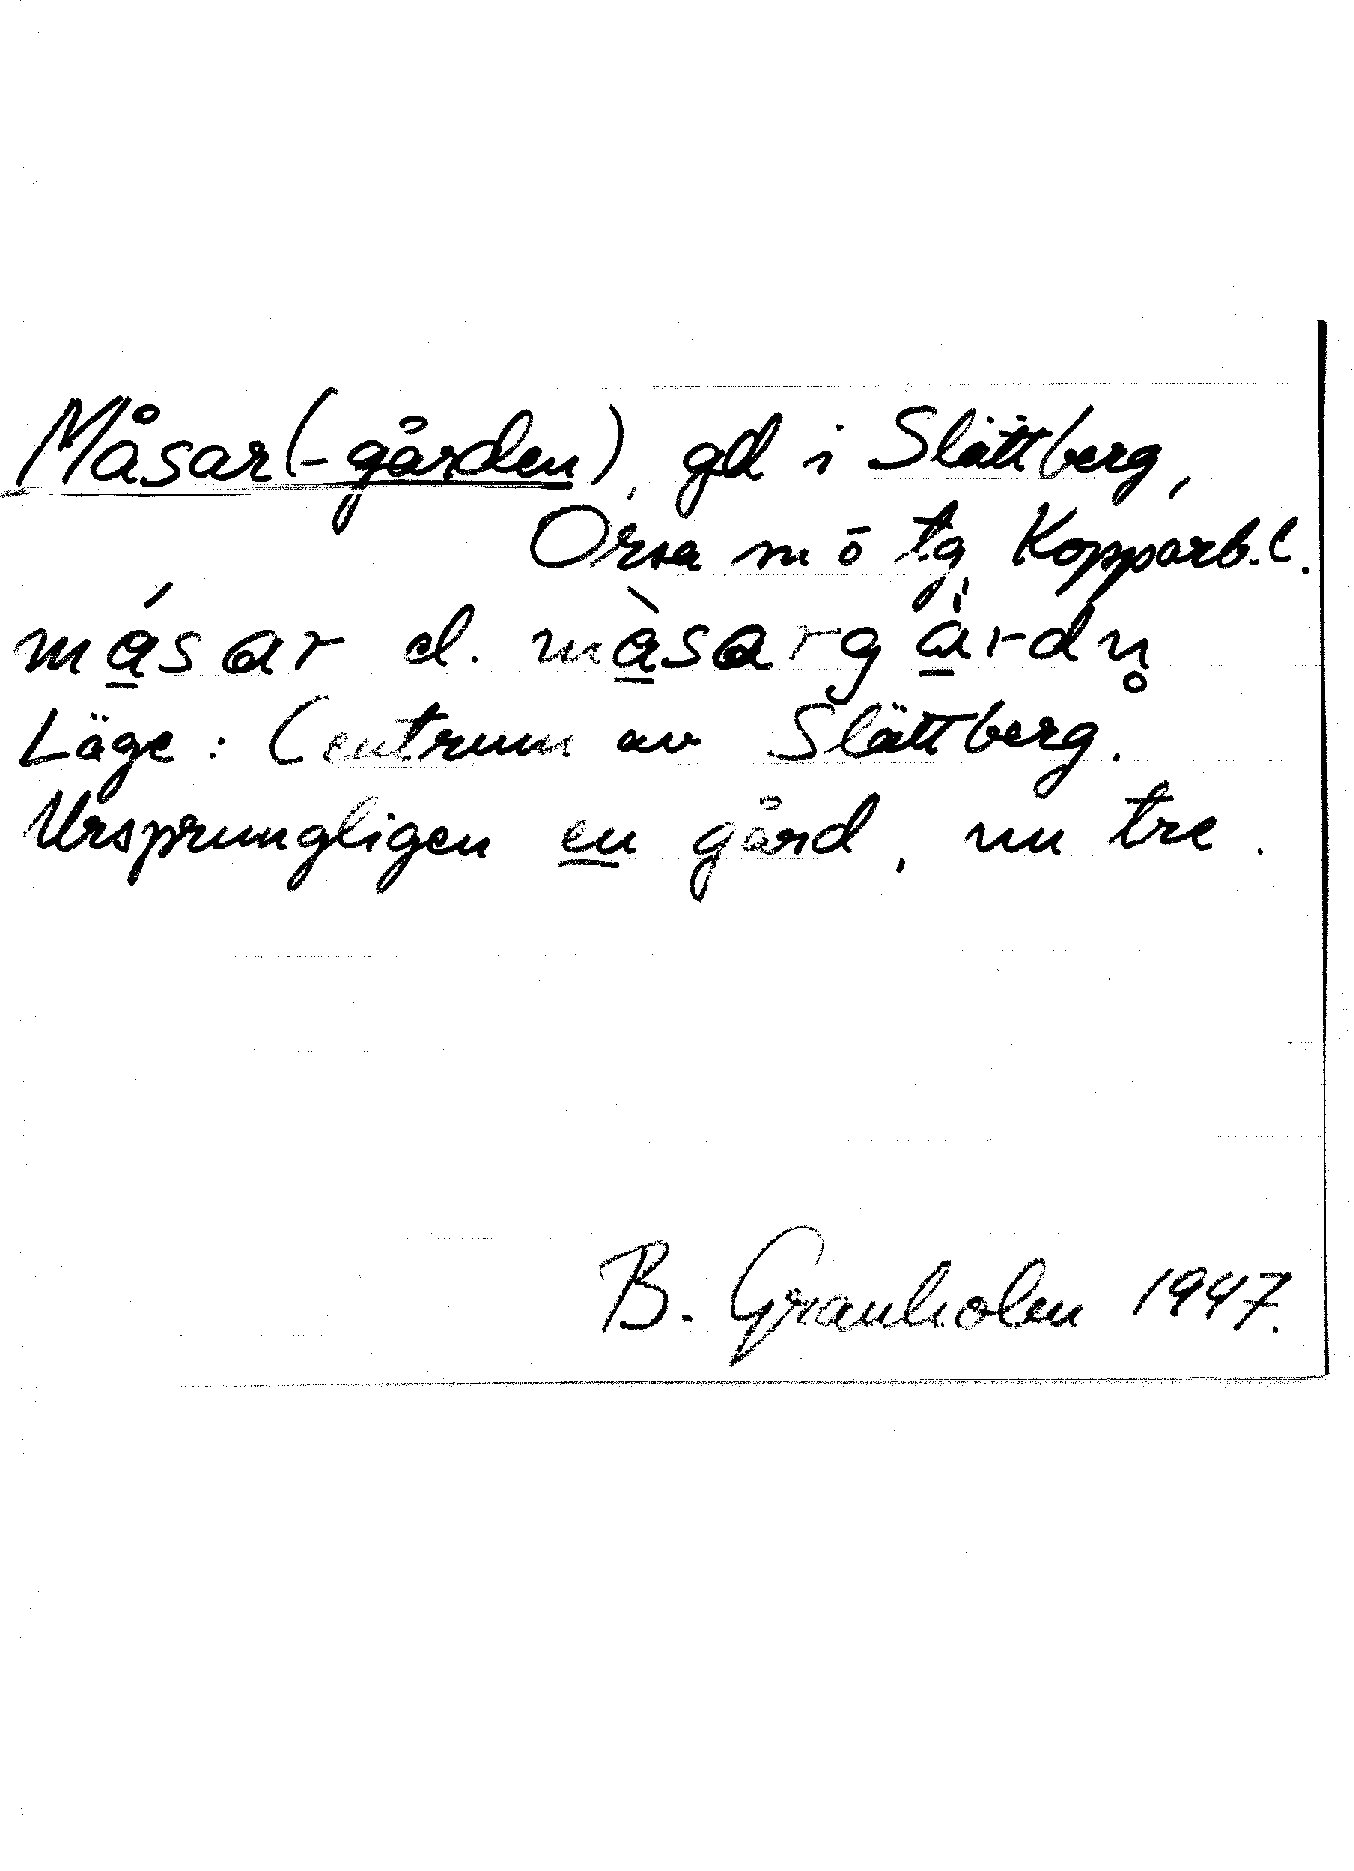 Måsar(-gården), gd i Slättberg,
Orsa sn o tg Kopparb. l.
måsar el. måsargård̥n
Läge: Centrum av Slättberg.
Ursprungligen en gård, nu tre.
B. Granholm 1947.